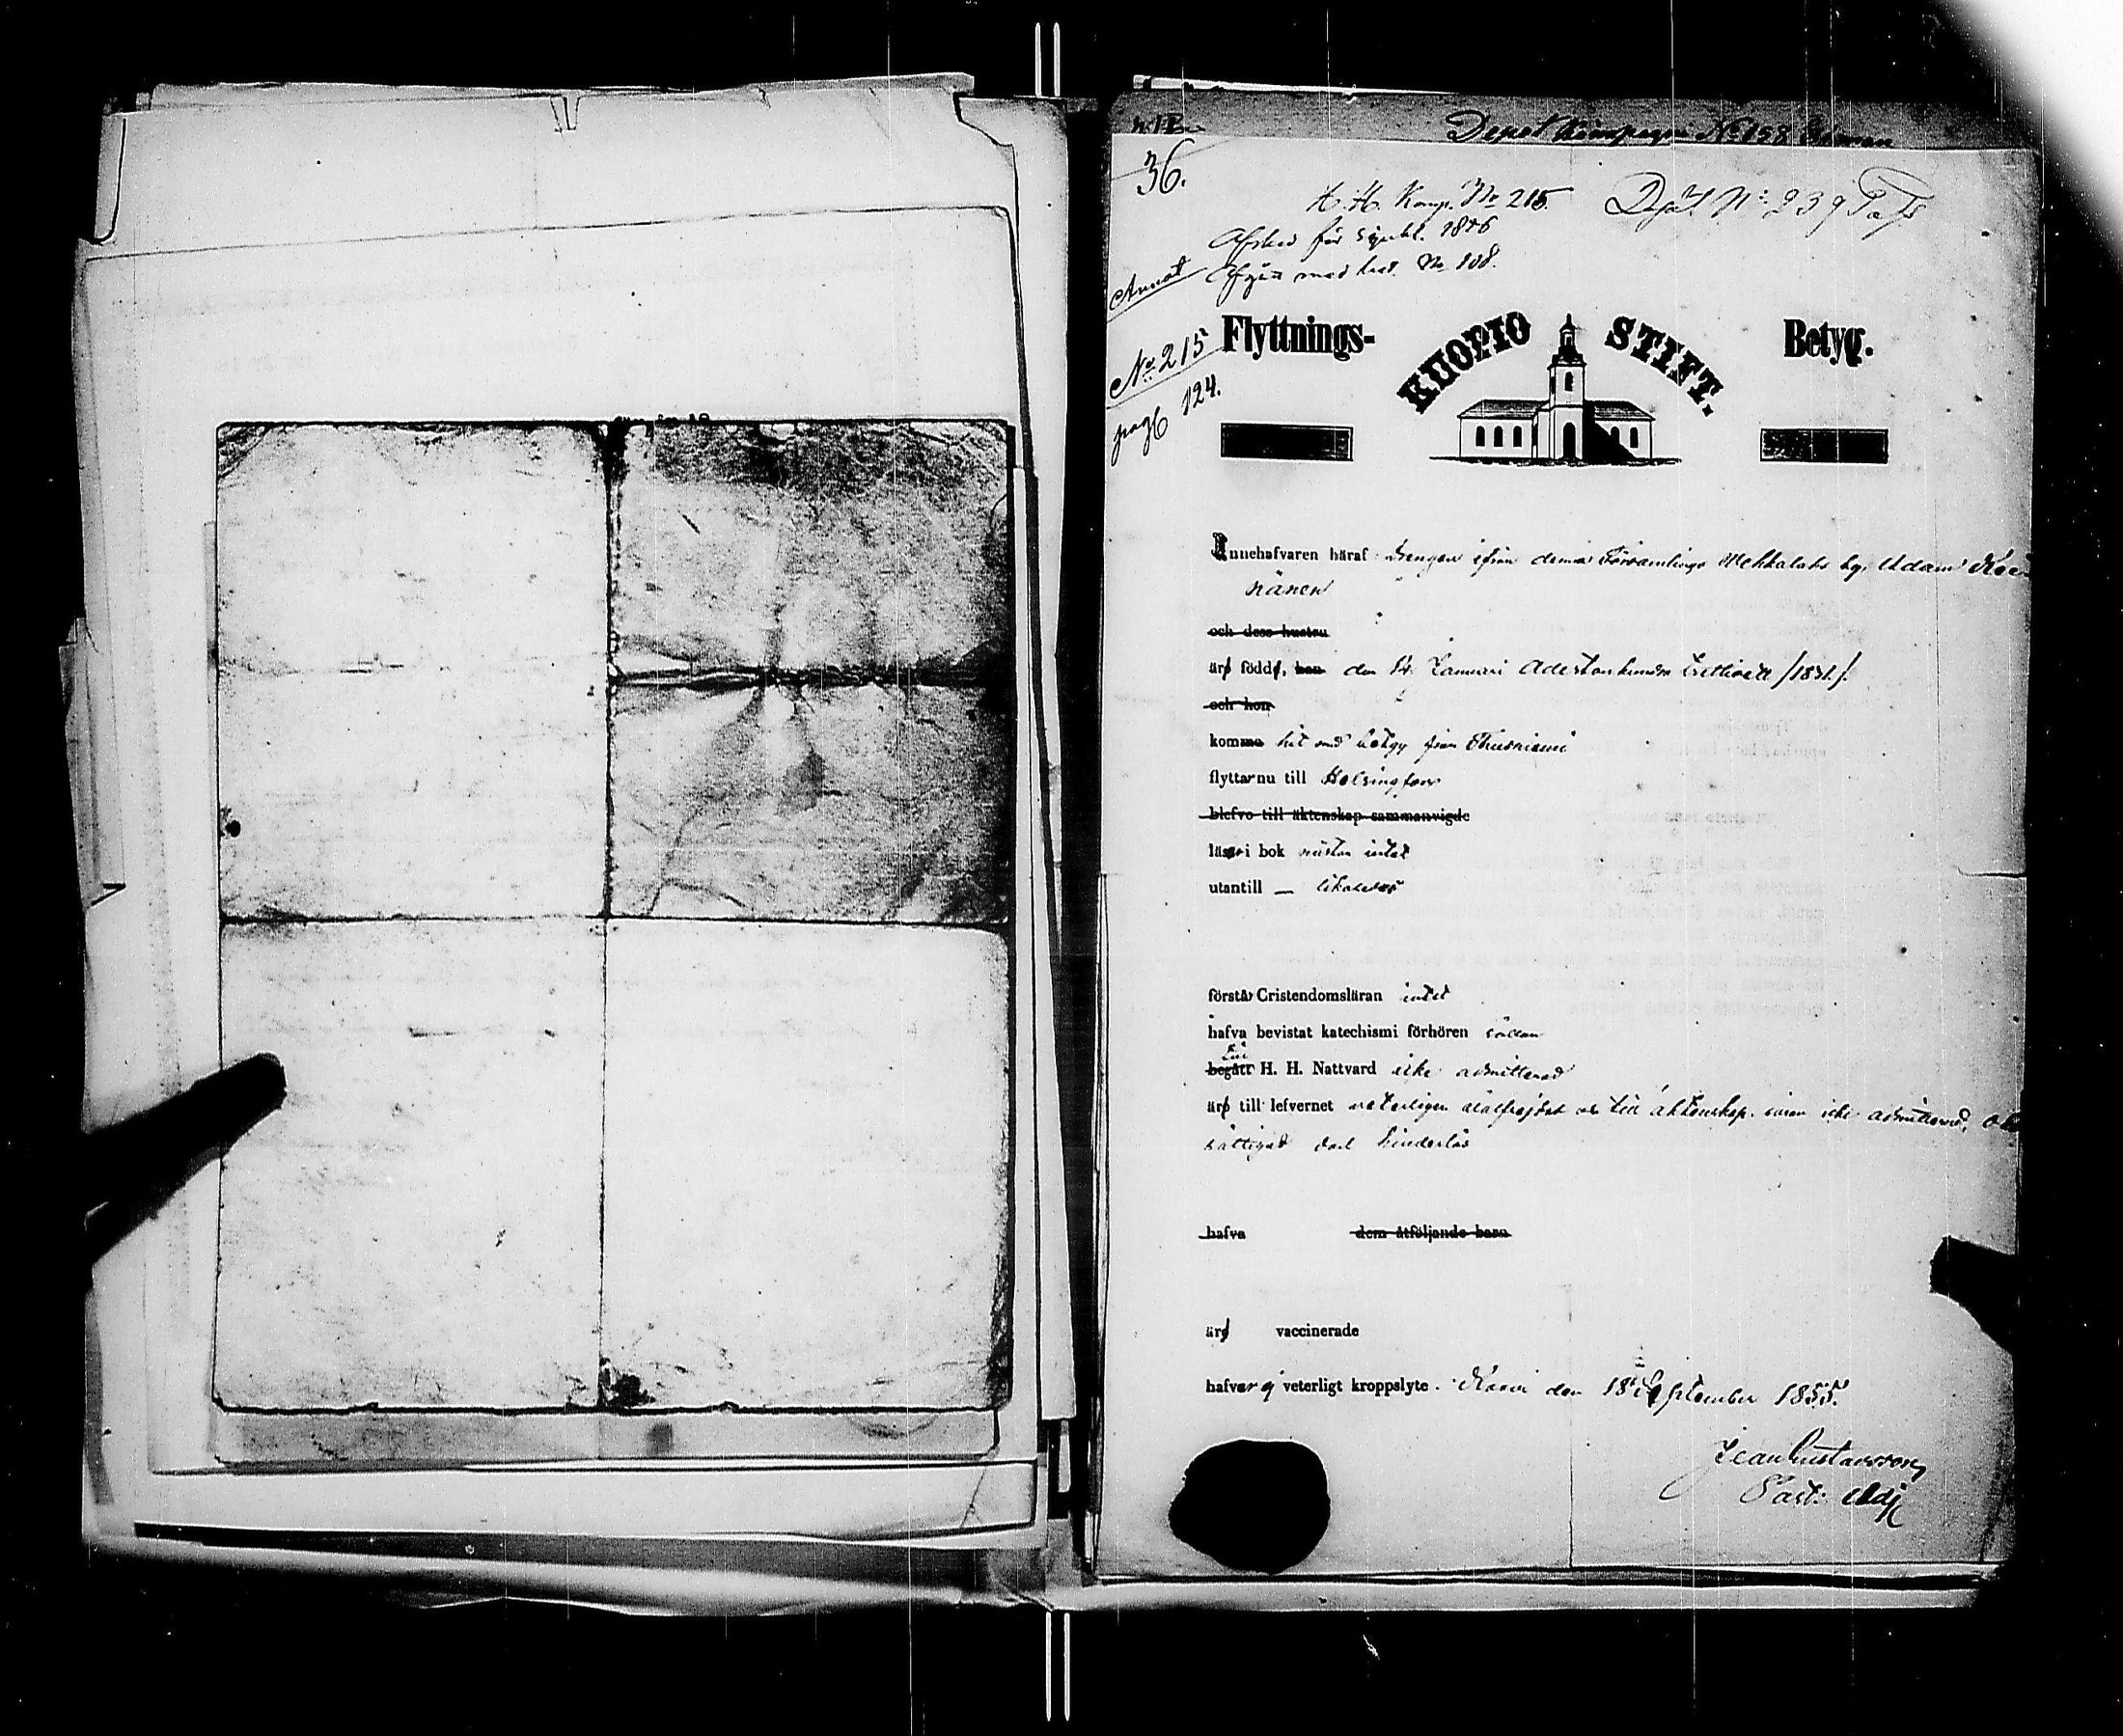 Depot Kompagni No 158
36.
H. H. Komp. No 215.
Depôt No 239
Afsked för sjukl. 1856
med No 208.
Annot
No 215
pag 124.
Flyttnings-
KUOPIO STIFT.
Betyg.
Innehafvaren häraf Drengen ifrån denna Församlings by, Adam
nänen
och dess hustru
är född, han den 14 Januari Adertonhundra Trettioett /1831./
och hon
komme hit med betyg från Thusniemi
flyttar nu till Helsingfors
blefvo till äktenskap sammanvigde
läser i bok nästan intet
utantill — likaledes
förstår Cristendomsläran intet
hafva bevistat katechismi förhören sällan
begått till H. H. Nattvard icke admitterad
är till lefvernet veterligen och till äktenskap, såsom icke admitterad,
rättigad dock hinderlös
hafva dem åtföljande barn
äro vaccinerade
hafver ej veterligt kroppslyte. Kaavi den 18 September 1855.
Jean Gustavsson
Past: Adj